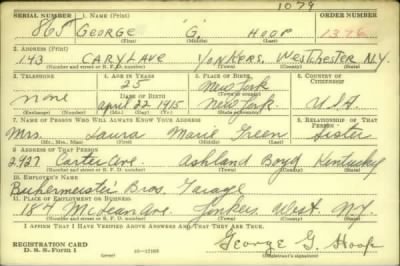 1079
SERIAL NUMBER 1. NAME (Print) ORDER NUMBER
865 GEORGE "G." HOOP 1376
(First) (Middle) (Last)
2. ADDRESS (Print)
143 CARYL AVE YONKERS, WESTCHESTER N.Y.
(Number and street or R. F. D. number) (Town) (County) (State)
3. TELEPHONE 4. AGE IN YEARS 5. PLACE OF BIRTH 6. COUNTRY OF CITIZENSHIP
25 New York
none DATE OF BIRTH (Town or county)
April 22 1915 New York U.S.A
(Exchange) (Number) (Mo.) (Day) (Yr.) (State or country)
7. NAME OF PERSON WHO WILL ALWAYS KNOW YOUR ADDRESS 8. RELATIONSHIP OF THAT PERSON
Mrs. Laura Marie Green Sister
(Mr., Mrs., Miss) (First) (Middle) (Last)
9. ADDRESS OF THAT PERSON
2927 Carter Ave. Ashland Boyd Kentucky
(Number and street or R. F. D. number) (Town) (County) (State)
10. EMPLOYER'S NAME
Bros. Garage
11. PLACE OF EMPLOYMENT OR BUSINESS
184 McLean Ave. Yonkers West. N.Y.
(Number and street or R. F. D. number) (Town) (County) (State)
I AFFIRM THAT I HAVE VERIFIED ABOVE ANSWERS AND THAT THEY ARE TRUE.
REGISTRATION CARD George G. Hoop
D. S. S. Form 1 (over) (Registrant's signature)